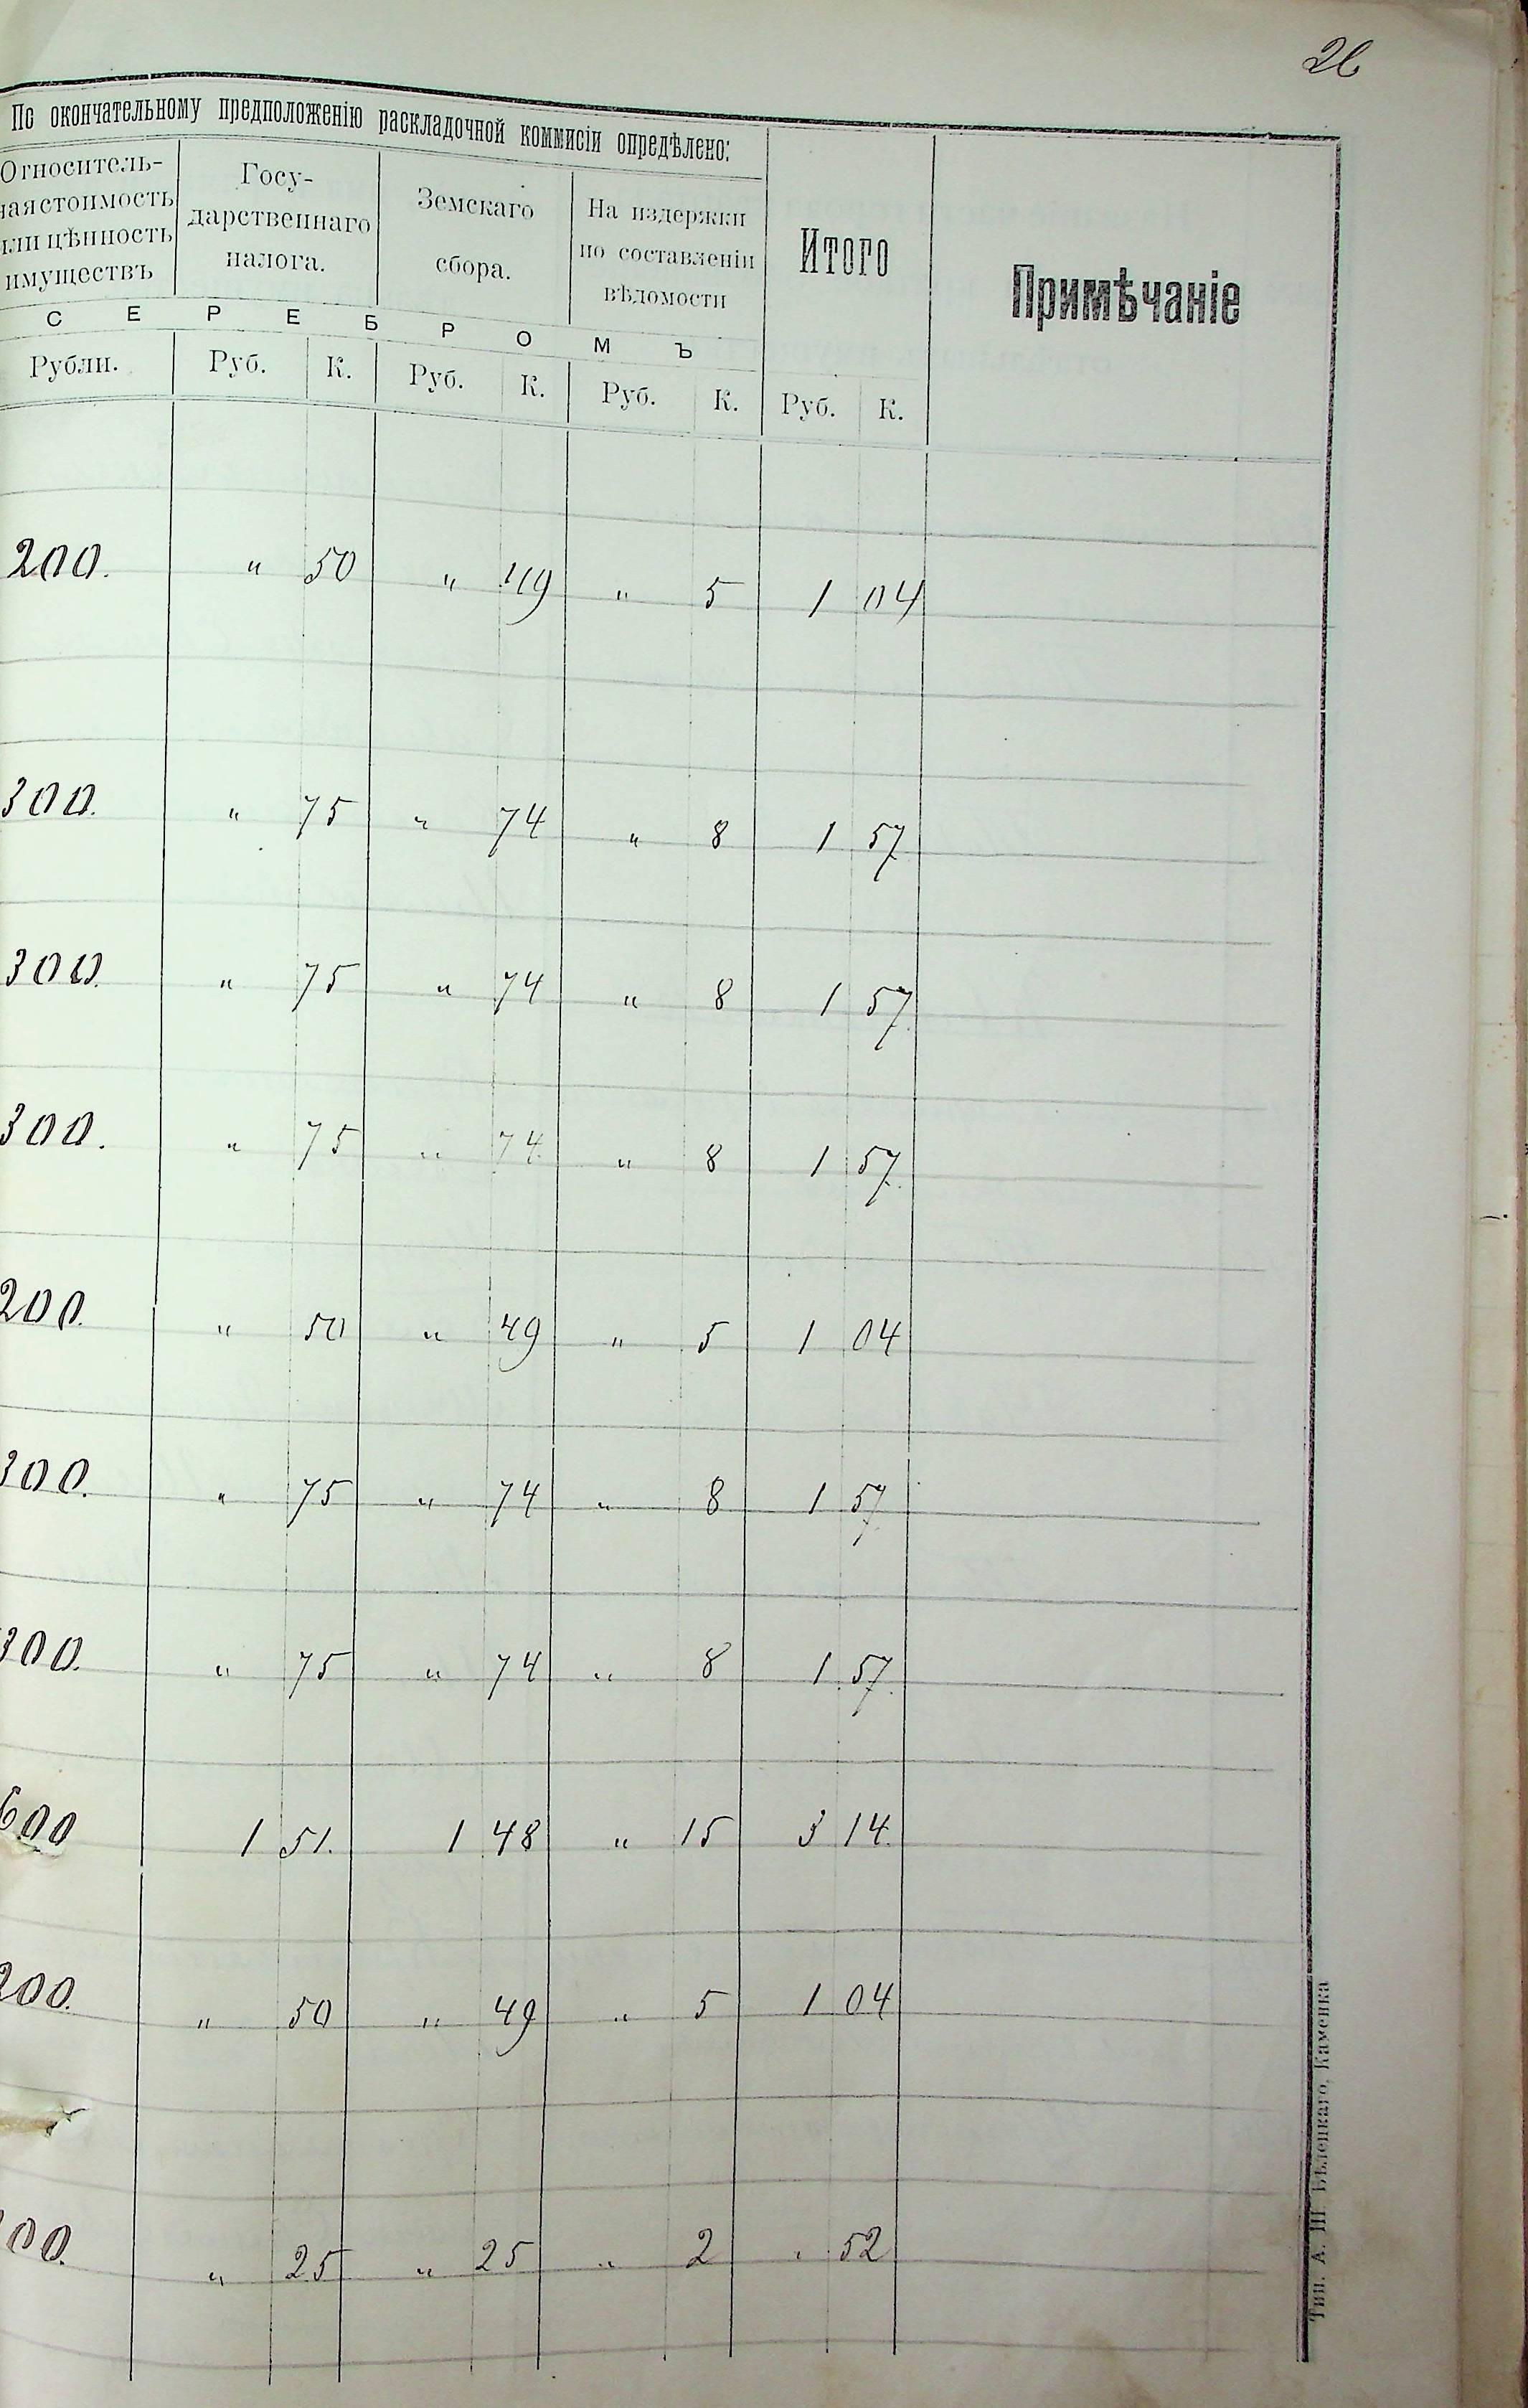 26
По окончательному предположенію раскладочной коммисіи опредѣлено:
Относитель-
ная стоимость
или цѣнность
имуществъ
Госу-
дарственнаго
налога.
Земскаго
сбора.
На издержки
по составленіи
вѣдомости
Итого
Примѣчаніе
С Е Р Е Б Р О М Ъ
Рубли. Руб. К. Руб. К. Руб. К. Руб. К.
200. " 50 " 49 " 5 1 04
300. " 75 " 74 " 8 1 57
300. " 75 " 74 " 8 1 57.
300. " 75 " 74 " 8 1 57.
200. " 50 " 49 " 5 1 04
300. " 75 " 74 " 8 1 57
300. " 75 " 74 " 8 1 57.
600 1 51. 1 48 " 15 3 14.
200. " 50 " 49 " 5 1 04
100. " 25 " 25 " 2 " 52
Тип. А. Ш. Бѣленкаго, Каменка